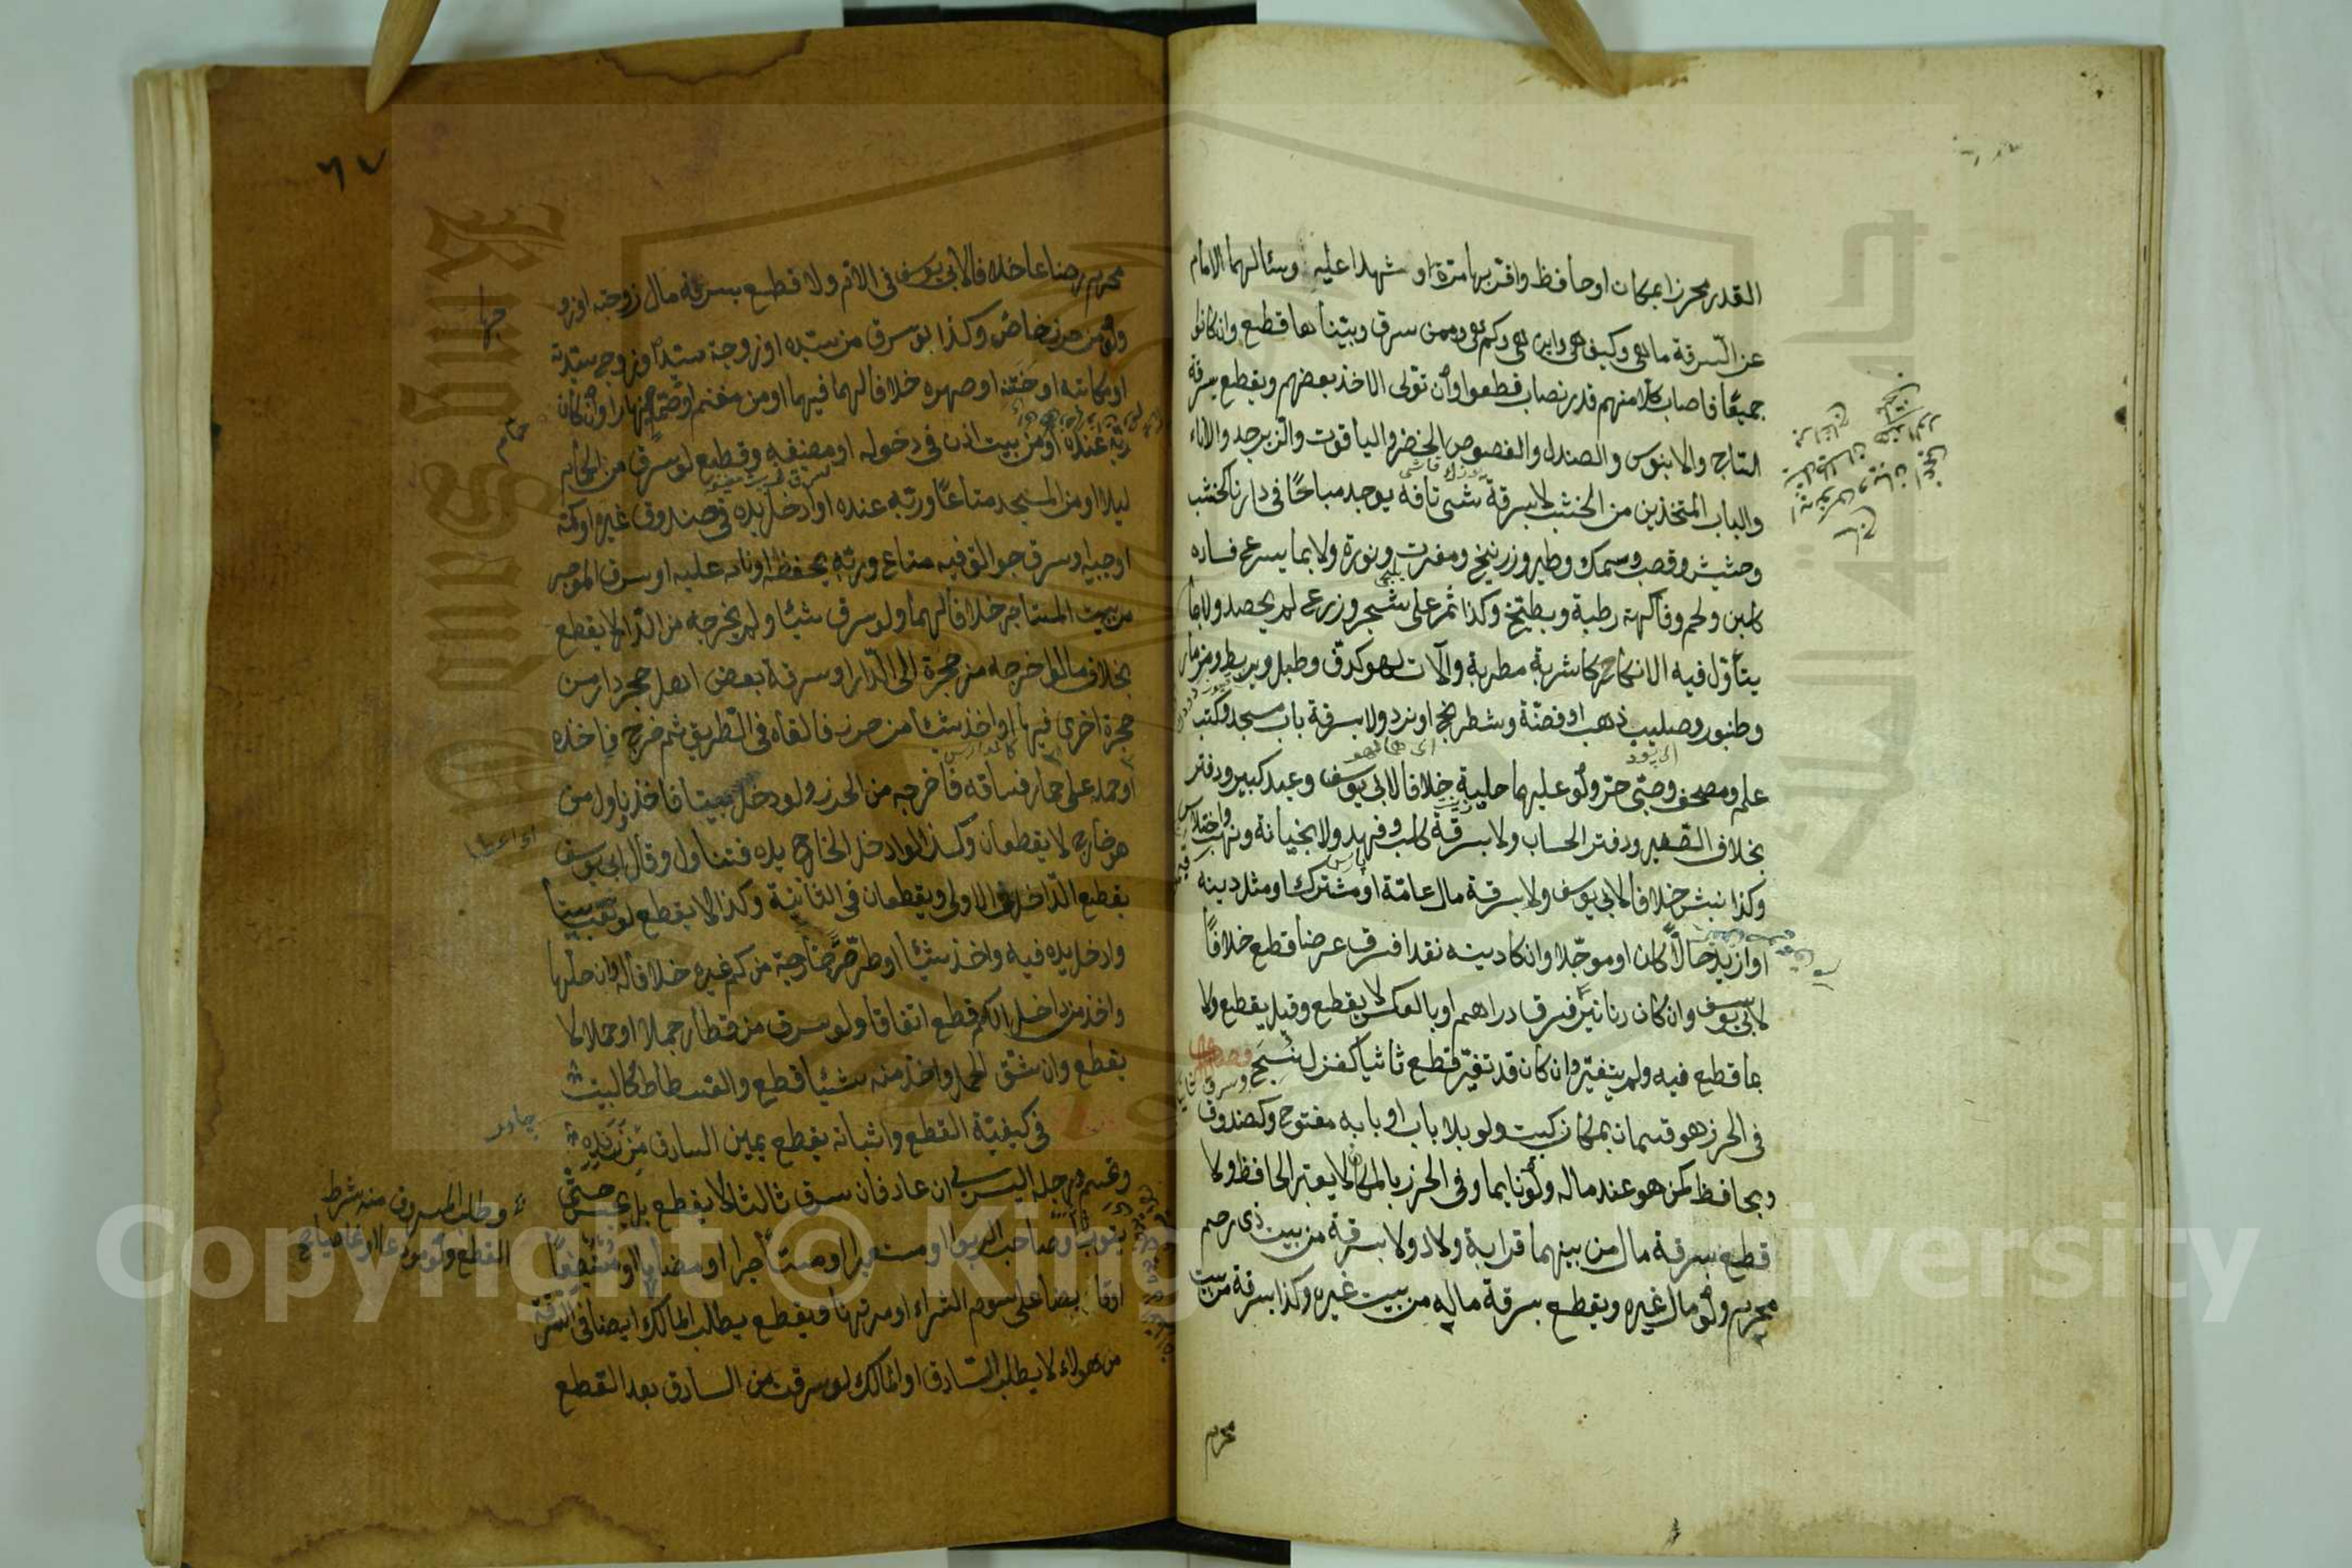 القدر محرزا بمكان او حافظ واقر بها مرة او شهدا عليه وسئالهما الامام
عن السرقة ما هى وكيف هى واين هى وكم هى وممن سرق وبينا ها قطع وان كانوا
جميعا فاصاب كلا منهم قدر نصاب قطعوا وان تولى الاخذ بعضهم ويقطع بسرقة
الساج والابنوس والصندل والفصوص الخضر والياقوت والزبرجد والاناء
والباب المتخذين من الخشب لا بسرقة شئ تافه يوجد مباحا فى دارنا كخشب
وحشيش وقصب وسمك وطير وزرنيخ ومغرت ونورة ولا بما يسرع فساده
كلبن ولحم وفاكهة رطبة وبطيخ وكذا ثمر على شجر وزرع لم يحصد ولا بما
يتأول فيه الانكار كاشربة مطربة وآلات لهو كدف وطبل وبربط ومزمار
وطنبور وصليب ذهب او فضة وشطرنج او نرد ولا بسرقة باب مسجد وكتب
علم ومصحف وصبى حر ولو عليهما حلية خلافا لابى يوسف وعبد كبير ودفتر
بخلاف الصغير ودفتر الحساب ولا بسرقة كلب وفهد ولا بخيانة ونهب واختلاس
وكذا نبش خلافا لابى يوسف ولا بسرقة مال عامة او مشترك او مثل دينه
او ازيد حالا كان او موجلا وان كا دينه نقدا فسرق عرضا قطع خلافا
لابى يوسف وان كان دنانير فسرق دراهم او بالعكس لا يقطع وقيل يقطع ولا
بما قطع فيه ولم يتغير وان كان قد تغير قطع ثانيا كغزل نسج
فى الحرز هو قسمان بمكان كبيت ولو بلا باب او بابه مفتوح وكصندوق
وبحافظ كمن هو عند ماله ولو نايما وفى الحرز بالمكان لا يعتبر الحافظ ولا
قطع بسرقة مال من بينهما قرابة ولاد ولا بسرقة من بيت ذى رحم
محرم ولو مال غيره ويقطع بسرقة ماله من بيت غيره وكذا بسرقة من بيت
محرم
٦٧
محرم رضاعا خلافا لابى يوسف فى الام ولا قطع بسرقة مال زوجته او زو
جها
ولو من حرز خاص وكذا لو سرق من سيده او زوجة سيده او زوج سيدته
او مكاتبه او ختنه او صهره خلافا لهما فيهما او من مغنم او حمام نهارا وان كان
حمام
ربه عنده او من بيت اذن فى دخوله او مضيفه وقطع لو سرق من الحمام
ليلا او من المسجد متاعا وربه عنده او ادخل يده فى صندوق غيره او كمه
او جيبه او سرق جوالق فيه متاع وربه يحفظه او نائم عليه او سرق الموجر
من بيت المستاجر خلافا لهما ولو سرق شيئا ولم يخرجه من الدار لا يقطع
بخلاف ما لو اخرجه من حجرة الى الدار او سرقة بعض اهل حجر دار من
حجرة اخرى فيها او اخذ شيئا من حرز فالقاه فى الطريق ثم خرج فاخذه
او حمله على حمار فساقه فاخرجه من الحرز ولو دخل بيتا فاخذ وناول من
هو خارج لا يقطعان وكذا لو ادخل الخارج يده فتناول وقال ابى يوسف
يقطع الداخل فى الاولى ويقطعان فى الثانية وكذا لا يقطع لو نقب بيتا
وادخل يده فيه واخذ شيئا او طر صرة خارجة من كم غيره خلافا له وان حلها
واخذ من داخل الكم قطع اتفاقا ولو سرق من قطار جملا او حملا لا
يقطع وان شق الحمل واخذ منه شيئا قطع والفسطاط كالبيت
فى كيفية القطع واثباته يقطع يمين السارق من زنده
وتحسم ورجله اليسرى ان عاد فان سرق ثالثا لا يقطع بل يحبس حتى
يتوب وطلب المسروق منه شرط
القطع ولو مودعا او غاصبا
او صاحب الربوا او مستعيرا او مستأجرا او مضاربا او مستبضعا
او قابضا على سوم الشراء او مرتهنا ويقطع بطلب المالك ايضا فى السرقة
من هولاء لا بطلب السارق او المالك لو سرقت من السارق بعد القطع
Copyright © King Saud University